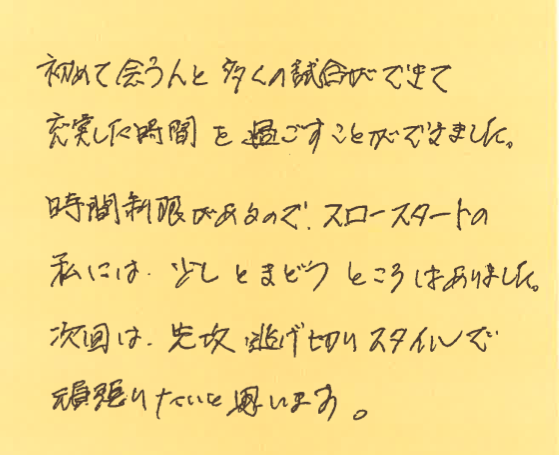 初めて会う人と多くの試合ができて
充実した時間を過ごすことができました。
時間制限があるので、スロースタートの
私には、少しとまどうところはありました。
次回は、先攻逃げ切りスタイルで
頑張りたいと思います。